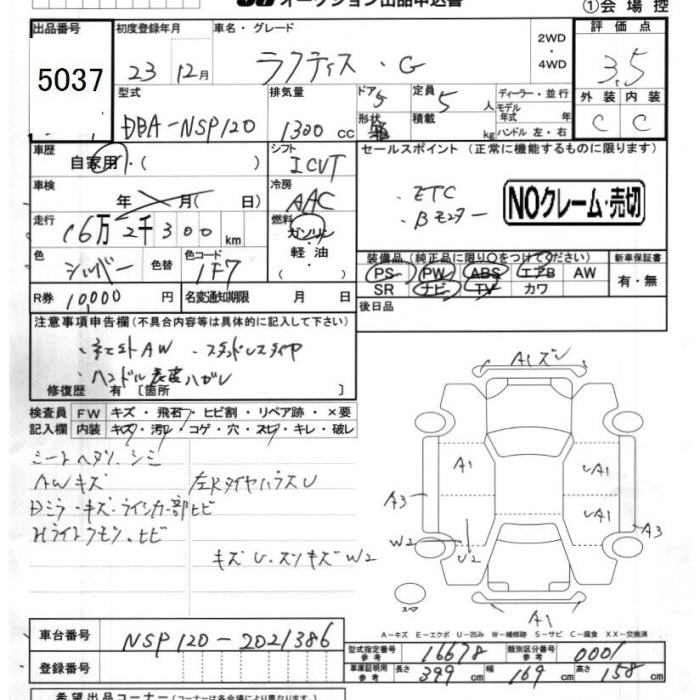 オークション出品申込書
①会場控
出品番号 初度登録年月 車名・グレード 評価点
5037 23 12月 ラクティス・G 2WD・4WD 3.5
型式 排気量 ドア 定員 ディーラー・並行 外装 内装
DBA-NSP120 1300 cc 5 5人 モデル年式 年 C C
形状 積載 kg ハンドル 左・右
車歴 シフト セールスポイント (正常に機能するものに限ります)
自家用・( ) ICVT
車検 冷房 ・ETC
年 月( 日) AAC ・Bモニター
NOクレーム・売切
走行 燃料
16万2千300km ガソリン・軽油・( )
装備品 (純正品に限り○をつけてください) 新車保証書
色 色替 色コード PS PW ABS エアB AW 有・無
シルバー 1F7 SR ナビ TV カワ
R券 10,000円 名変通知期限 月 日 後日品
注意事項申告欄(不具合内容等は具体的に記入して下さい)
・ハンドル表皮ハガレ
修復歴 有〔箇所 〕
検査員 FW キズ・飛石・ヒビ割・リペア跡・×要
記入欄 内装 キズ・汚レ・コゲ・穴・スレ・キレ・破レ
シートヘタリ.シミ
AWキズ 左Rタイヤハウス U
Dミラーキズ・ウインカー部ヒビ
Hライトクモリ.ヒビ
キズ U.スリキズ W2
A1キズU
A1 UA1
A3 UA1 A3
W2 U2
スペア A1
A-キズ E-エクボ U-凹み W-補修跡 S-サビ C-腐食 XX-交換済
車台番号 NSP120-2021386
型式指定番号 参考 16678 類別区分番号 参考 0001
登録番号 車庫証明用 参考 長さ 399 cm 幅 169 cm 高さ 158 cm
希望出品コーナー